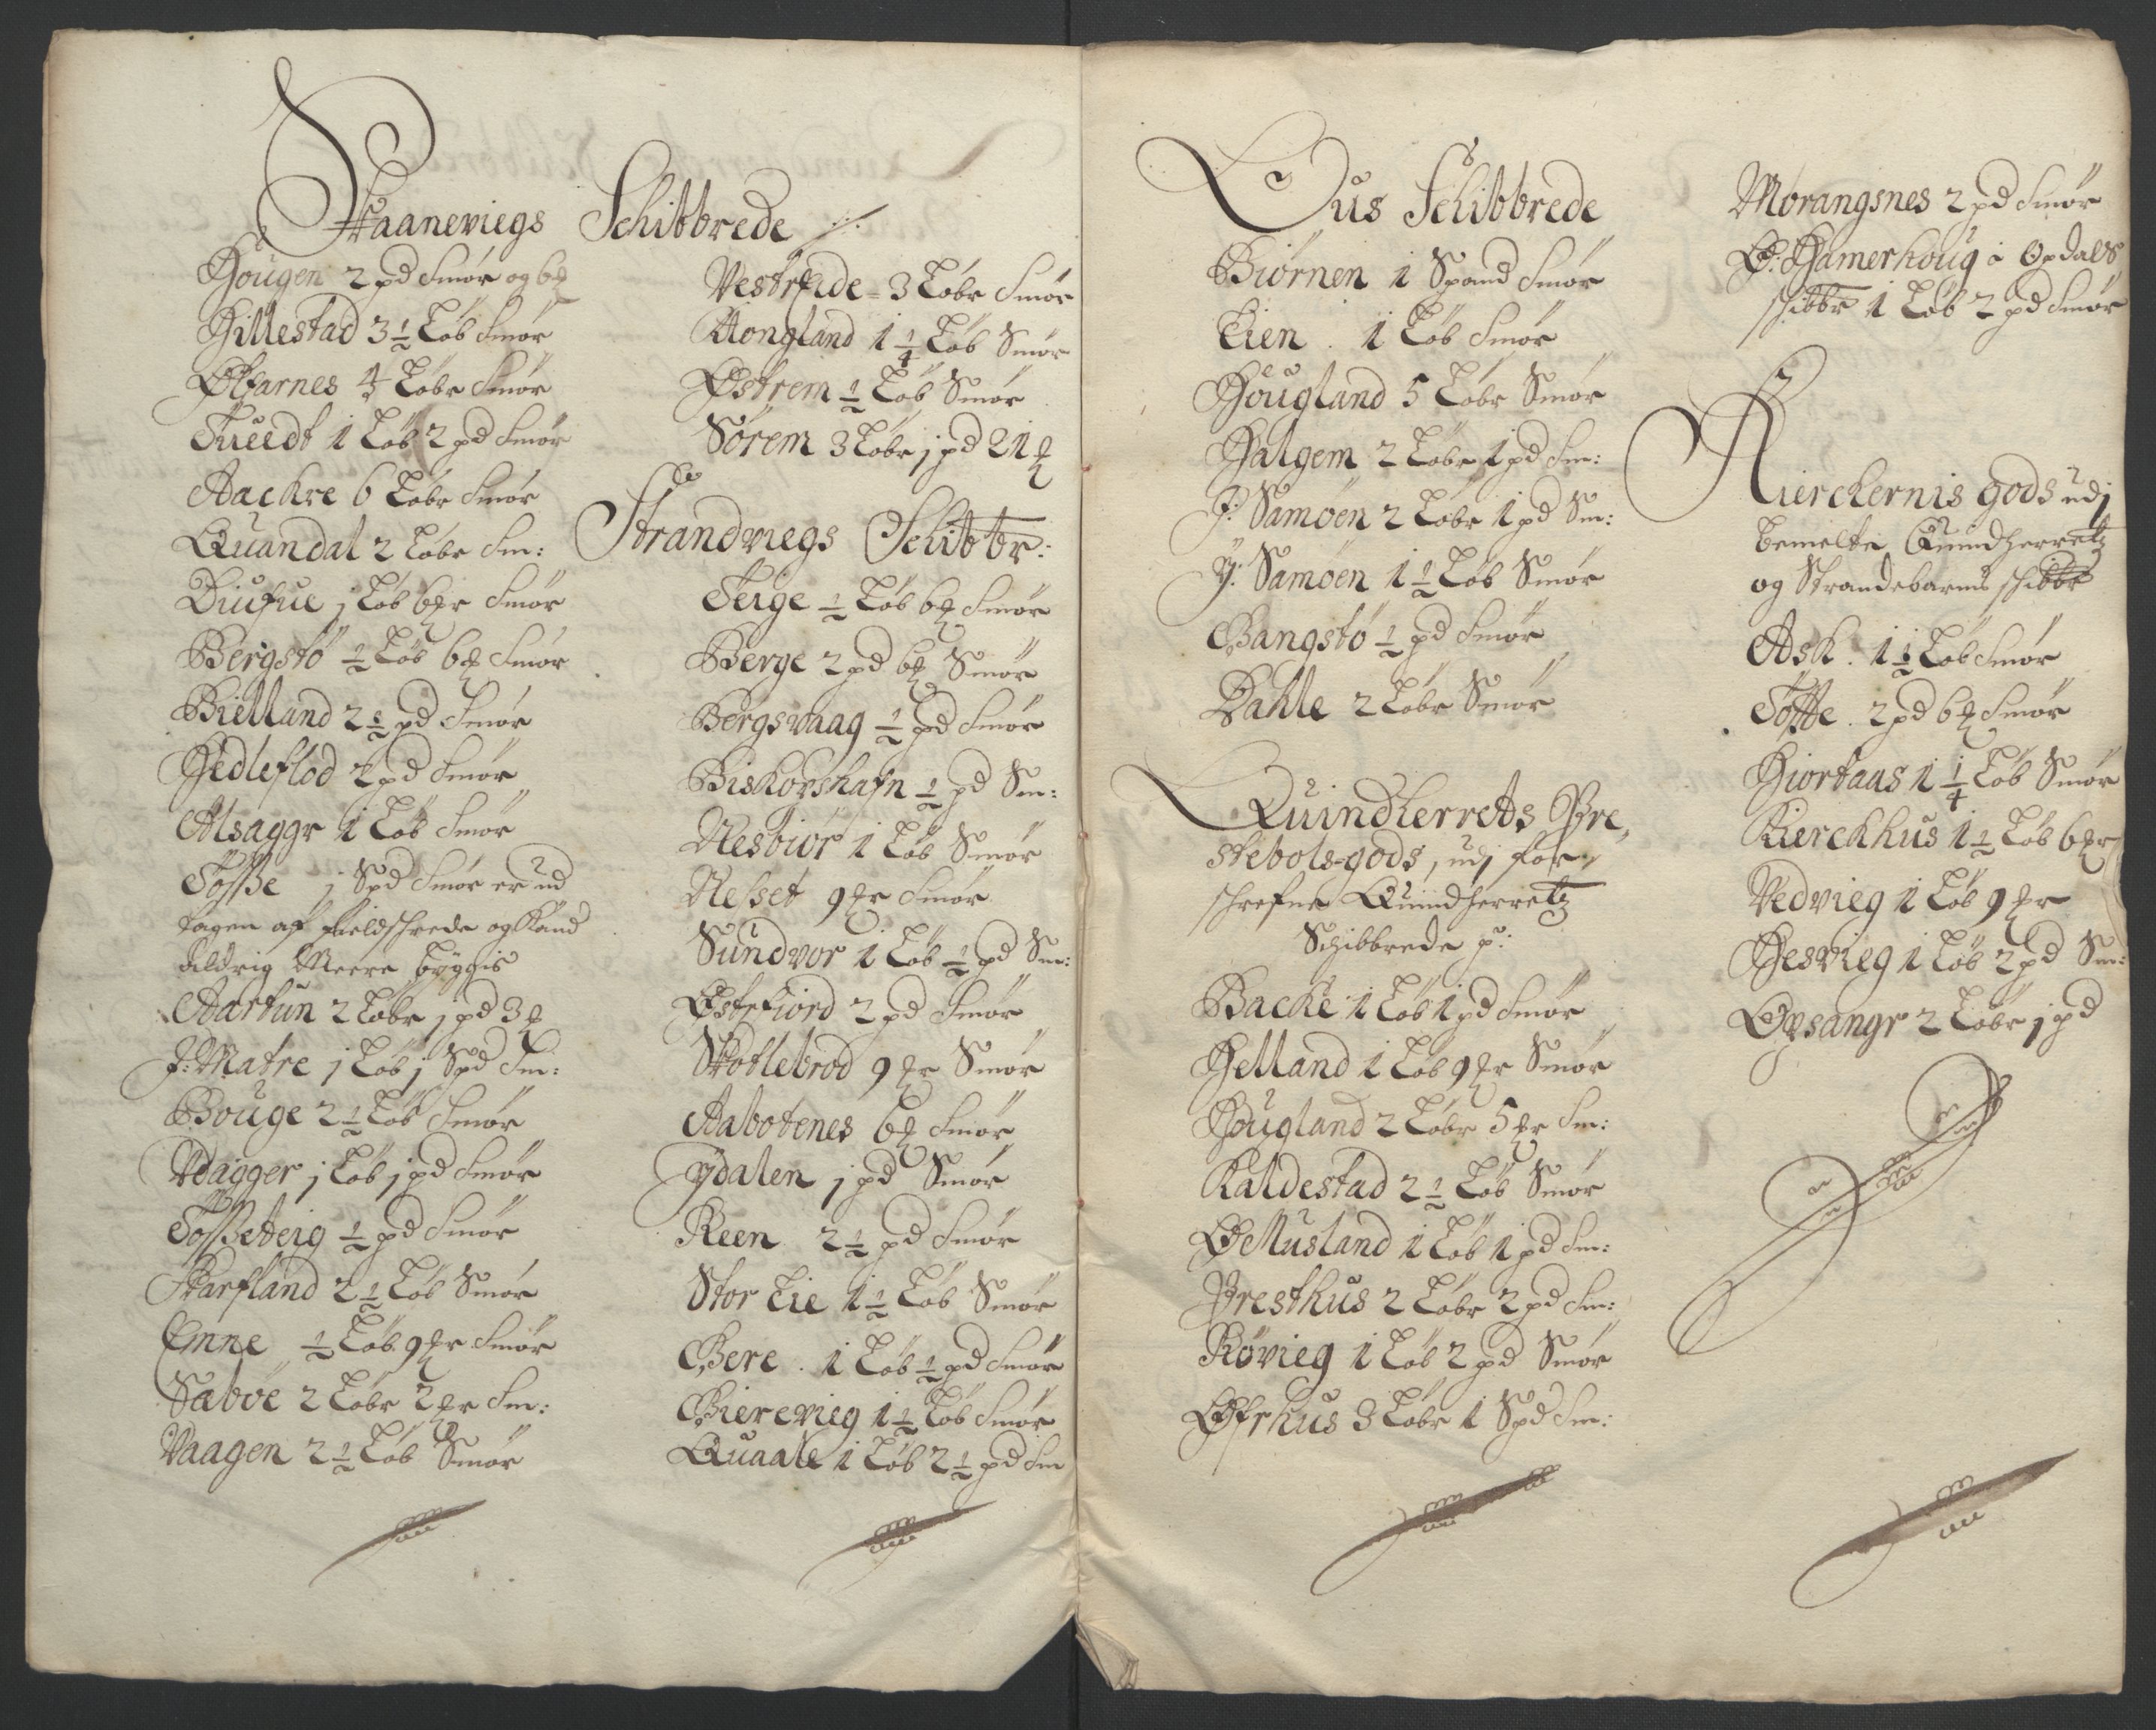 Skaaneviegs Schibbrede ./.
Hougen 2 pd Smør og 6 ℔
Hillestad 3 ½ Løb Smør
Ølfarnes 4 Løbr Smør
Tuedt 1 Løb 2 pd Smør
Aackre 6 Løbr Smør
Quandal 2 Løbr Sm:
Diufue j Løb 6 ℔r Smør
Bergstø ½ Løb 6 ℔ Smør
Bielland 2 ½ pd Smør
Hedleflod 2 pd Smør
Alsaggr 1 Løb Smør
Tøsse j Spd Smør er ud
tagen af fieldschrede og Kand
aldrig Meere byggis
Aartun 2 Løbr j pd 3 ℔
J: Matre j Løb j Spd Sm:
Bouge 2 ½ Løb Smør
Vdagger j Løb j pd Smør
Tøsseteig ½ pd Smør
Skarfland 2 ½ Løb Smør
Emne ½ Løb 9 ℔r Smør
Sæbøe 2 Løbr 2 ℔r Sm:
Vaagen 2 ½ Løb Smør
Vestreide 3 Løbr Smør
Rongland 1 ¼ Løb Smør
Østrem ½ Løb Smør
Sørem 3 Løbr j pd 21 ℔
Strandviegs Schibbr:
Teige ½ Løb 6 ℔ Smør
Berge 2 pd 6 ℔ Smør
Bergsvaag ½ pd Smør
Biskopshafn ½ pd Sm:
Nesbiør 1 Løb Smør
Nesset 9 ℔r Smør
Sundvor 1 Løb ½ pd Sm:
Østefiord 2 pd Smør
Skotlebrod 9 ℔r Smør
Aabotenes 6 ℔ Smør
Ydalen j pd Smør
Reen 2 ½ pd Smør
Stor Eie 1 ½ Løb Smør
Gere . 1 Løb ½ pd Smør
Gierevieg 1 ½ Løb Smør
Quaale 1 Løb 2 ½ pd Sm
Øus Schibbrede
Biørnen 1 Spand Smør
Eien . 1 Løb Smør
Hougland 5 Løbr Smør
Halgem 2 Løbr 1 pd Sm:
J: Samøen 2 Løbr 1 pd Sm:
Y: Samøen 1 ½ Løb Smør
Gangstø ½ pd Smør
Dahle 2 Løbr Smør
Quindherrets Pre,
stebols-gods, udj for,
schrefne Quindherretz
Schibbrede p:
Backe 1 Løb 1 pd Smør
Helland 1 Løb 9 ℔r Smør
Hougland 2 Løbr 5 ℔r Sm:
Kaldestad 2 ½ Løb Smør
Ø Musland 1 Løb 1 pd Sm:
Presthus 2 Løbr 2 pd Sm:
Røvieg 1 Løb 2 pd Smør
Øfrhus 3 Løbr 1 Spd Sm:
Morangsnes 2 pd Smør
Ø: Hamerhoug i Opdals
schibbr 1 Løb 2 pd Smør
Kierckernis gods udj
bemelte Quindherretz
og Strandebarms schibbr
Ask . 1 ½ Løb Smør
Tofte . 2 pd 6 ℔ Smør
Hiortaas 1 ¼ Løb Smør
Kierckhus 1 ½ Løb 6 ℔r
Vedvieg 1 Løb 9 ℔r
Hesvieg 1 Løb 2 pd Sm:
Opsangr 2 Løbr j pd